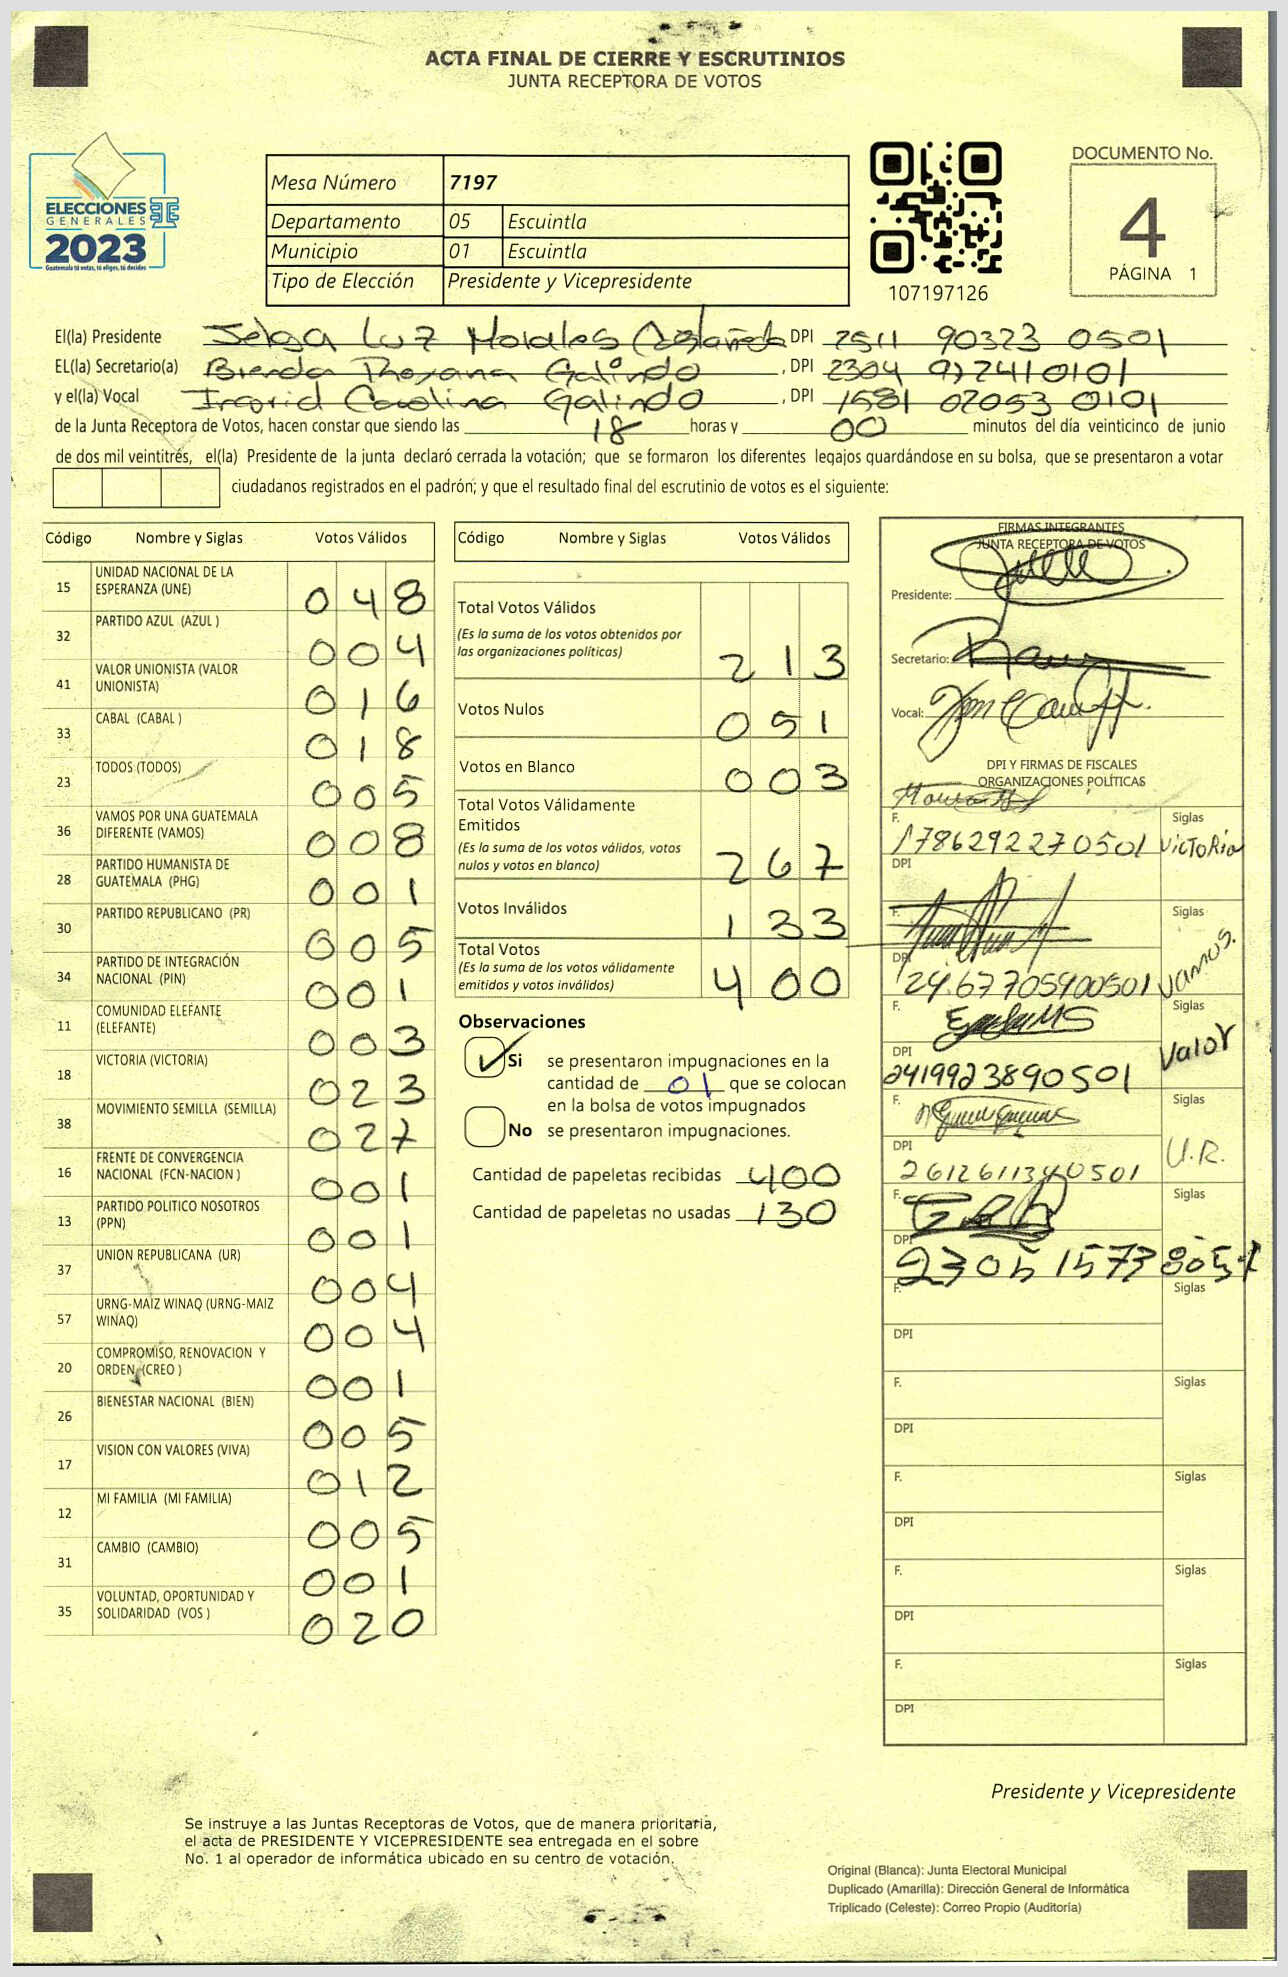 ACTA FINAL DE CIERRE Y ESCRUTINIOS
JUNTA RECEPTORA DE VOTOS
ELECCIONES
GENERALES
2023
Guatemala tú votas, tú eliges, tú decides
Mesa Número 7197
Departamento 05 Escuintla
Municipio 01 Escuintla
Tipo de Elección Presidente y Vicepresidente
107197126
DOCUMENTO No.
4
PÁGINA 1
El(la) Presidente Luz Morales Castañeda DPI 2511 90323 0501
EL(la) Secretario(a) Brenda Roxana Galindo , DPI 2304 0101
y el(la) Vocal Ingrid Carolina Galindo , DPI 1581 02053 0101
de la Junta Receptora de Votos, hacen constar que siendo las 18 horas y 00 minutos del día veinticinco de junio
de dos mil veintitrés, el(la) Presidente de la junta declaró cerrada la votación; que se formaron los diferentes legajos guardándose en su bolsa, que se presentaron a votar
ciudadanos registrados en el padrón; y que el resultado final del escrutinio de votos es el siguiente:
Código Nombre y Siglas Votos Válidos
15 UNIDAD NACIONAL DE LA
ESPERANZA (UNE) 048
32 PARTIDO AZUL (AZUL ) 004
41 VALOR UNIONISTA (VALOR
UNIONISTA) 016
33 CABAL (CABAL ) 018
23 TODOS (TODOS) 005
36 VAMOS POR UNA GUATEMALA
DIFERENTE (VAMOS) 008
28 PARTIDO HUMANISTA DE
GUATEMALA (PHG) 001
30 PARTIDO REPUBLICANO (PR) 005
34 PARTIDO DE INTEGRACIÓN
NACIONAL (PIN) 001
11 COMUNIDAD ELEFANTE
(ELEFANTE) 003
18 VICTORIA (VICTORIA) 023
38 MOVIMIENTO SEMILLA (SEMILLA) 027
16 FRENTE DE CONVERGENCIA
NACIONAL (FCN-NACION ) 001
13 PARTIDO POLITICO NOSOTROS
(PPN) 001
37 UNION REPUBLICANA (UR) 004
57 URNG-MAIZ WINAQ (URNG-MAIZ
WINAQ) 004
20 COMPROMISO, RENOVACION Y
ORDEN (CREO ) 001
26 BIENESTAR NACIONAL (BIEN) 005
17 VISION CON VALORES (VIVA) 012
12 MI FAMILIA (MI FAMILIA) 005
31 CAMBIO (CAMBIO) 001
35 VOLUNTAD, OPORTUNIDAD Y
SOLIDARIDAD (VOS ) 020
Código Nombre y Siglas Votos Válidos
Total Votos Válidos
(Es la suma de los votos obtenidos por
las organizaciones políticas) 213
Votos Nulos 051
Votos en Blanco 003
Total Votos Válidamente
Emitidos
(Es la suma de los votos válidos, votos
nulos y votos en blanco) 267
Votos Inválidos 133
Total Votos
(Es la suma de los votos válidamente
emitidos y votos inválidos) 400
Observaciones
Si se presentaron impugnaciones en la
cantidad de 01 que se colocan
en la bolsa de votos impugnados
No se presentaron impugnaciones.
Cantidad de papeletas recibidas 400
Cantidad de papeletas no usadas 130
FIRMAS INTEGRANTES
JUNTA RECEPTORA DE VOTOS
Presidente:
Secretario:
Vocal:
DPI Y FIRMAS DE FISCALES
ORGANIZACIONES POLÍTICAS
F. Siglas
1786292270501 VICTORIA
DPI
F. Siglas
DPI
2467705900501 Vamos.
F. Siglas
DPI Valor
2419923890501
F. Siglas
DPI U.R.
2612611340501
F. Siglas
DPI
F. Siglas
DPI
F. Siglas
DPI
F. Siglas
DPI
F. Siglas
DPI
F. Siglas
DPI
Presidente y Vicepresidente
Se instruye a las Juntas Receptoras de Votos, que de manera prioritaria,
el acta de PRESIDENTE Y VICEPRESIDENTE sea entregada en el sobre
No. 1 al operador de informática ubicado en su centro de votación.
Original (Blanca): Junta Electoral Municipal
Duplicado (Amarilla): Dirección General de Informática
Triplicado (Celeste): Correo Propio (Auditoría)